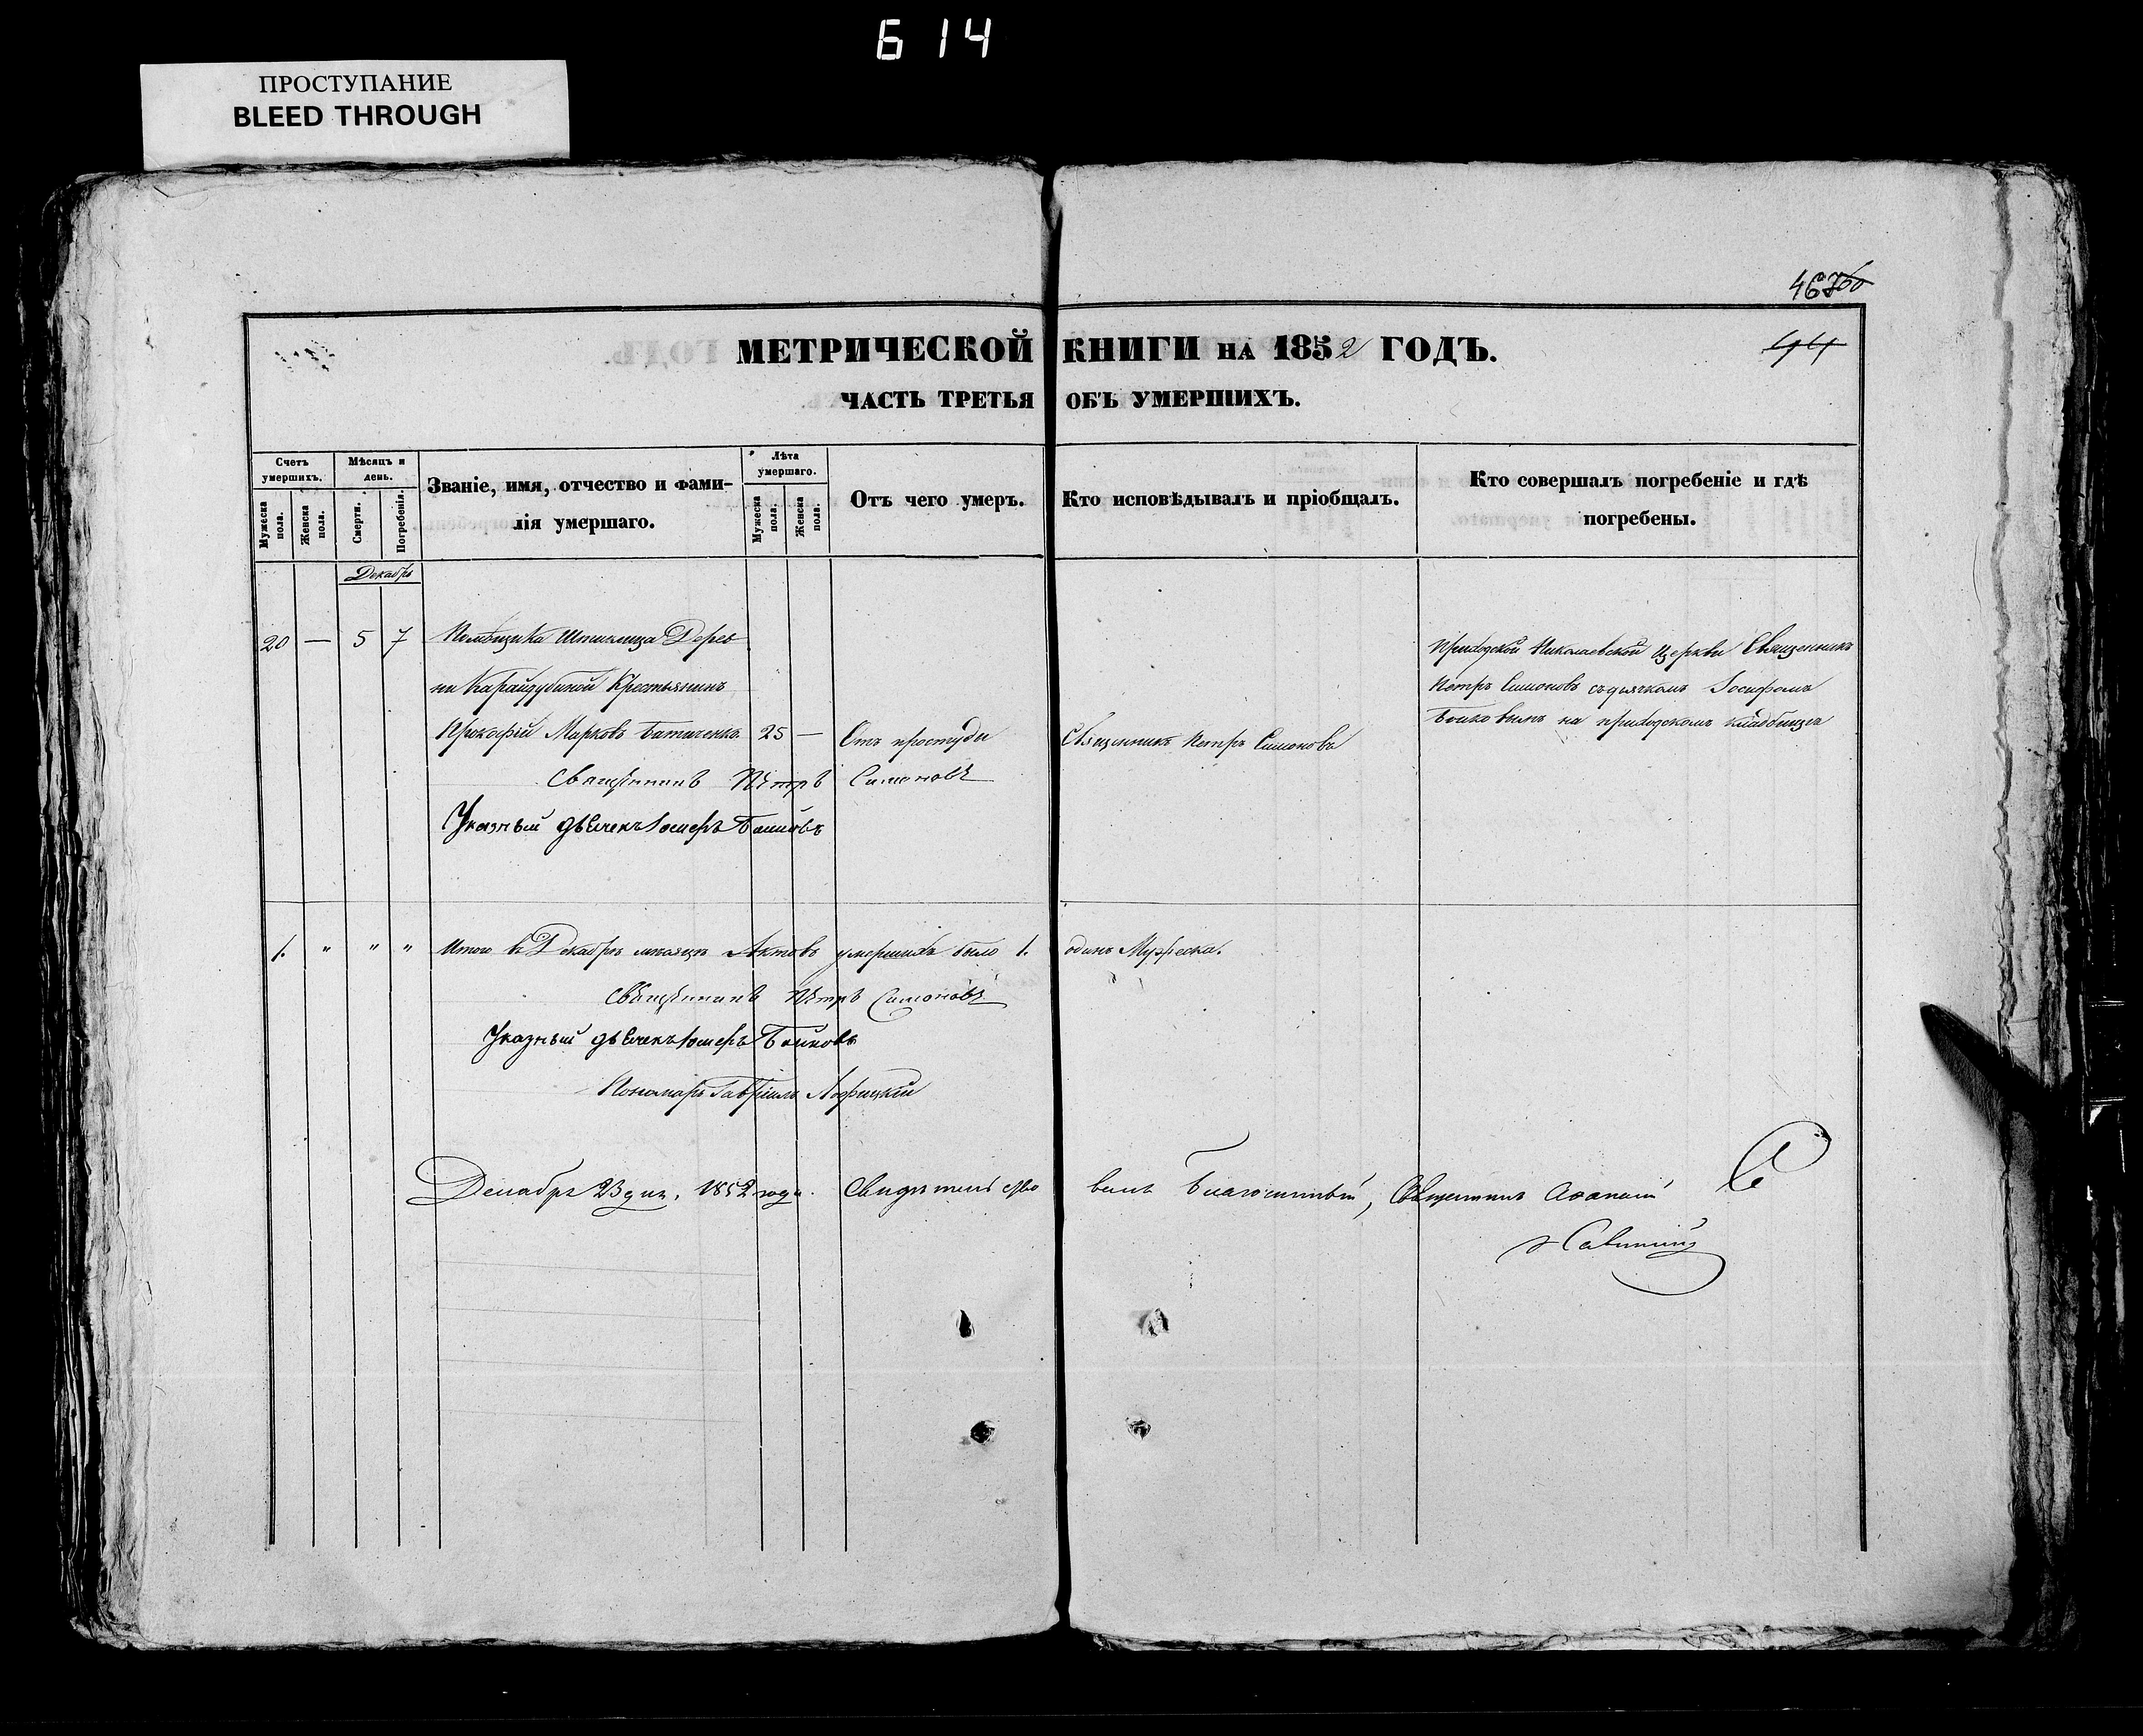 Б 14
ПРОСТУПАНИЕ
BLEED THROUGH
467
МЕТРИЧЕСКОЙ КНИГИ НА 1852 ГОДЪ.
ЧАСТЬ ТРЕТЬЯ ОБЪ УМЕРШИХЪ.
Счетъ умершихъ.
Мужеска пола.
Женска пола.
Мѣсяцъ и день.
Смерти.
Погребенія.
Званіе, имя, отчество и фами-
лія умершаго.
Лѣта умершаго.
Мужеска пола.
Женска пола.
Отъ чего умеръ.
Кто исповѣдывалъ и пріобщалъ.
Кто совершалъ погребеніе и гдѣ
погребены.
Декабрь
20 — 5 7 Помѣщика Дерев
ни Крестьянинъ
Прокофій Марковъ 25 — Отъ простуды Священникъ Петръ Симоновъ
Приходской Николаевской Церкви Священникъ
Петръ Симоновъ съ дьячкомъ Іосифомъ
Бойковымъ на приходскомъ кладбищѣ
Священникъ Петръ Симоновъ
Указный дьячекъ Іосифъ Бойковъ
1. " " " Итого въ Декабрѣ мѣсяцѣ Актовъ умершихъ было 1. одинъ Мужеска.
Священникъ Петръ Симоновъ
Указный дьячекъ Іосифъ Бойковъ
Пономарь Гавріилъ
Декабря 23 дня. 1852 года. Свидѣтельство
валъ Благочинный, Священникъ